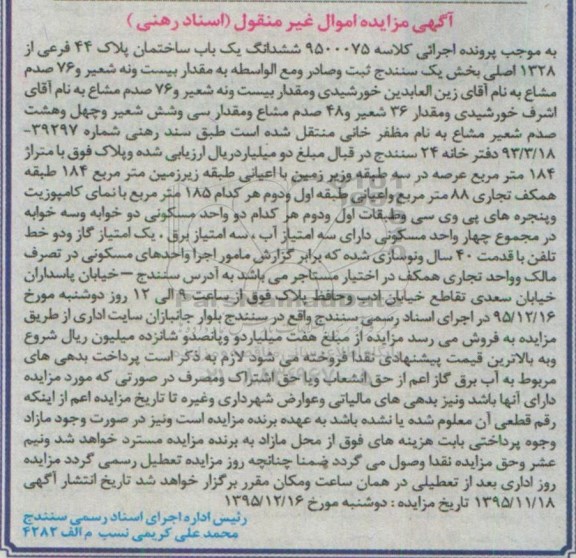 آگهی مزایده اموال غیر منقول (اسناد رهنی )
به موجب پرونده اجرائی کلاسه ۹۵۰۰۰۷۵ ششدانگ یک باب ساختمان پلاک ۴۴ فرعی از
۱۳۲۸ اصلی بخش یک سنندج ثبت وصادر ومع الواسطه به مقدار بیست ونه شعیر و۷۶ صدم
مشاع به نام آقای زین العابدین خورشیدی ومقدار بیست ونه شعیر و۷۶ صدم مشاع به نام آقای
اشرف خورشیدی ومقدار ۳۶ شعیر و۴۸ صدم مشاع ومقدار سی وشش شعیر وچهل وهشت
صدم شعیر مشاع به نام مظفر خانی منتقل شده است طبق سند رهنی شماره ۳۹۲۹۷-
۹۳/۳/۱۸ دفتر خانه ۲۴ سنندج در قبال مبلغ دو میلیاردریال ارزیابی شده وپلاک فوق با متراژ
۱۸۴ متر مربع عرصه در سه طبقه وزیر زمین با اعیانی طبقه زیرزمین متر مربع ۱۸۴ طبقه
همکف تجاری ۸۸ متر مربع واعیانی طبقه اول ودوم هر کدام ۱۸۵ متر مربع با نمای کامپوزیت
وپنجره های پی وی سی وطبقات اول ودوم هر کدام دو واحد مسکونی دو خوابه وسه خوابه
در مجموع چهار واحد مسکونی دارای سه امتیاز آب ، سه امتیاز برق ، یک امتیاز گاز ودو خط
تلفن با قدمت ۴۰ سال ونوسازی شده که برابر گزارش مامور اجرا واحدهای مسکونی در تصرف
مالک وواحد تجاری همکف در اختیار مستاجر می باشد به آدرس سنندج – خیابان پاسداران
خیابان سعدی تقاطع خیابان ادب وحافظ پلاک فوق از ساعت ۹ الی ۱۲ روز دوشنبه مورخ
۹۵/۱۲/۱۶ در اجرای اسناد رسمی سنندج واقع در سنندج بلوار جانبازان سایت اداری از طریق
مزایده به فروش می رسد مزایده از مبلغ هفت میلیاردو وپانصدو شانزده میلیون ریال شروع
وبه بالاترین قیمت پیشنهادی نقدا فروخته می شود لازم به ذکر است پرداخت بدهی های
مربوط به آب برق گاز اعم از حق انشعاب ویا حق اشتراک ومصرف در صورتی که مورد مزایده
دارای آنها باشد ونیز بدهی های مالیاتی وعوارض شهرداری وغیره تا تاریخ مزایده اعم از اینکه
رقم قطعی آن معلوم شده یا نشده باشد به عهده برنده مزایده است ونیز در صورت وجود مازاد
وجوه پرداختی بابت هزینه های فوق از محل مازاد به برنده مزایده مسترد خواهد شد ونیم
عشر وحق مزایده نقدا وصول می گردد ضمنا چنانچه روز مزایده تعطیل رسمی گردد مزایده
روز اداری بعد از تعطیلی در همان ساعت ومکان مقرر برگزار خواهد شد تاریخ انتشار آگهی
۱۳۹۵/۱۱/۱۸ تاریخ مزایده : دوشنبه مورخ ۱۳۹۵/۱۲/۱۶
رئیس اداره اجرای اسناد رسمی سنندج
محمد علی کریمی نسب م الف ۴۲۸۲